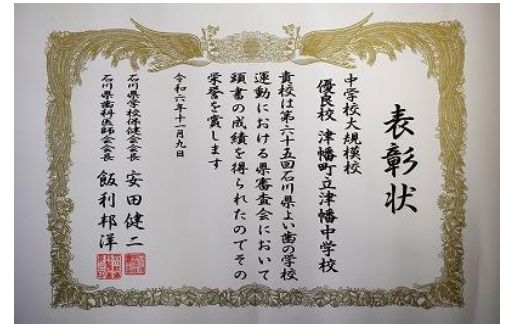 表彰状
中学校大規模校
優良校 津幡町立津幡中学校
貴校は第六十五回石川県よい歯の学校
運動における県審査会において
頭書の成績を得られたのでその
栄誉を賞します
令和六年十一月九日
石川県学校保健会会長 安田健二
石川県歯科医師会会長 飯利邦洋